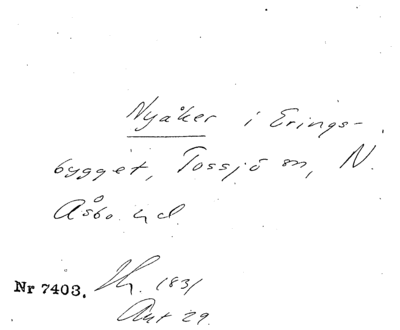 Nyåker i Erings-
bygget, Tossjö sn, N.
Åsbo hd.
Nr 7403. Th. 1831
Akt 29.